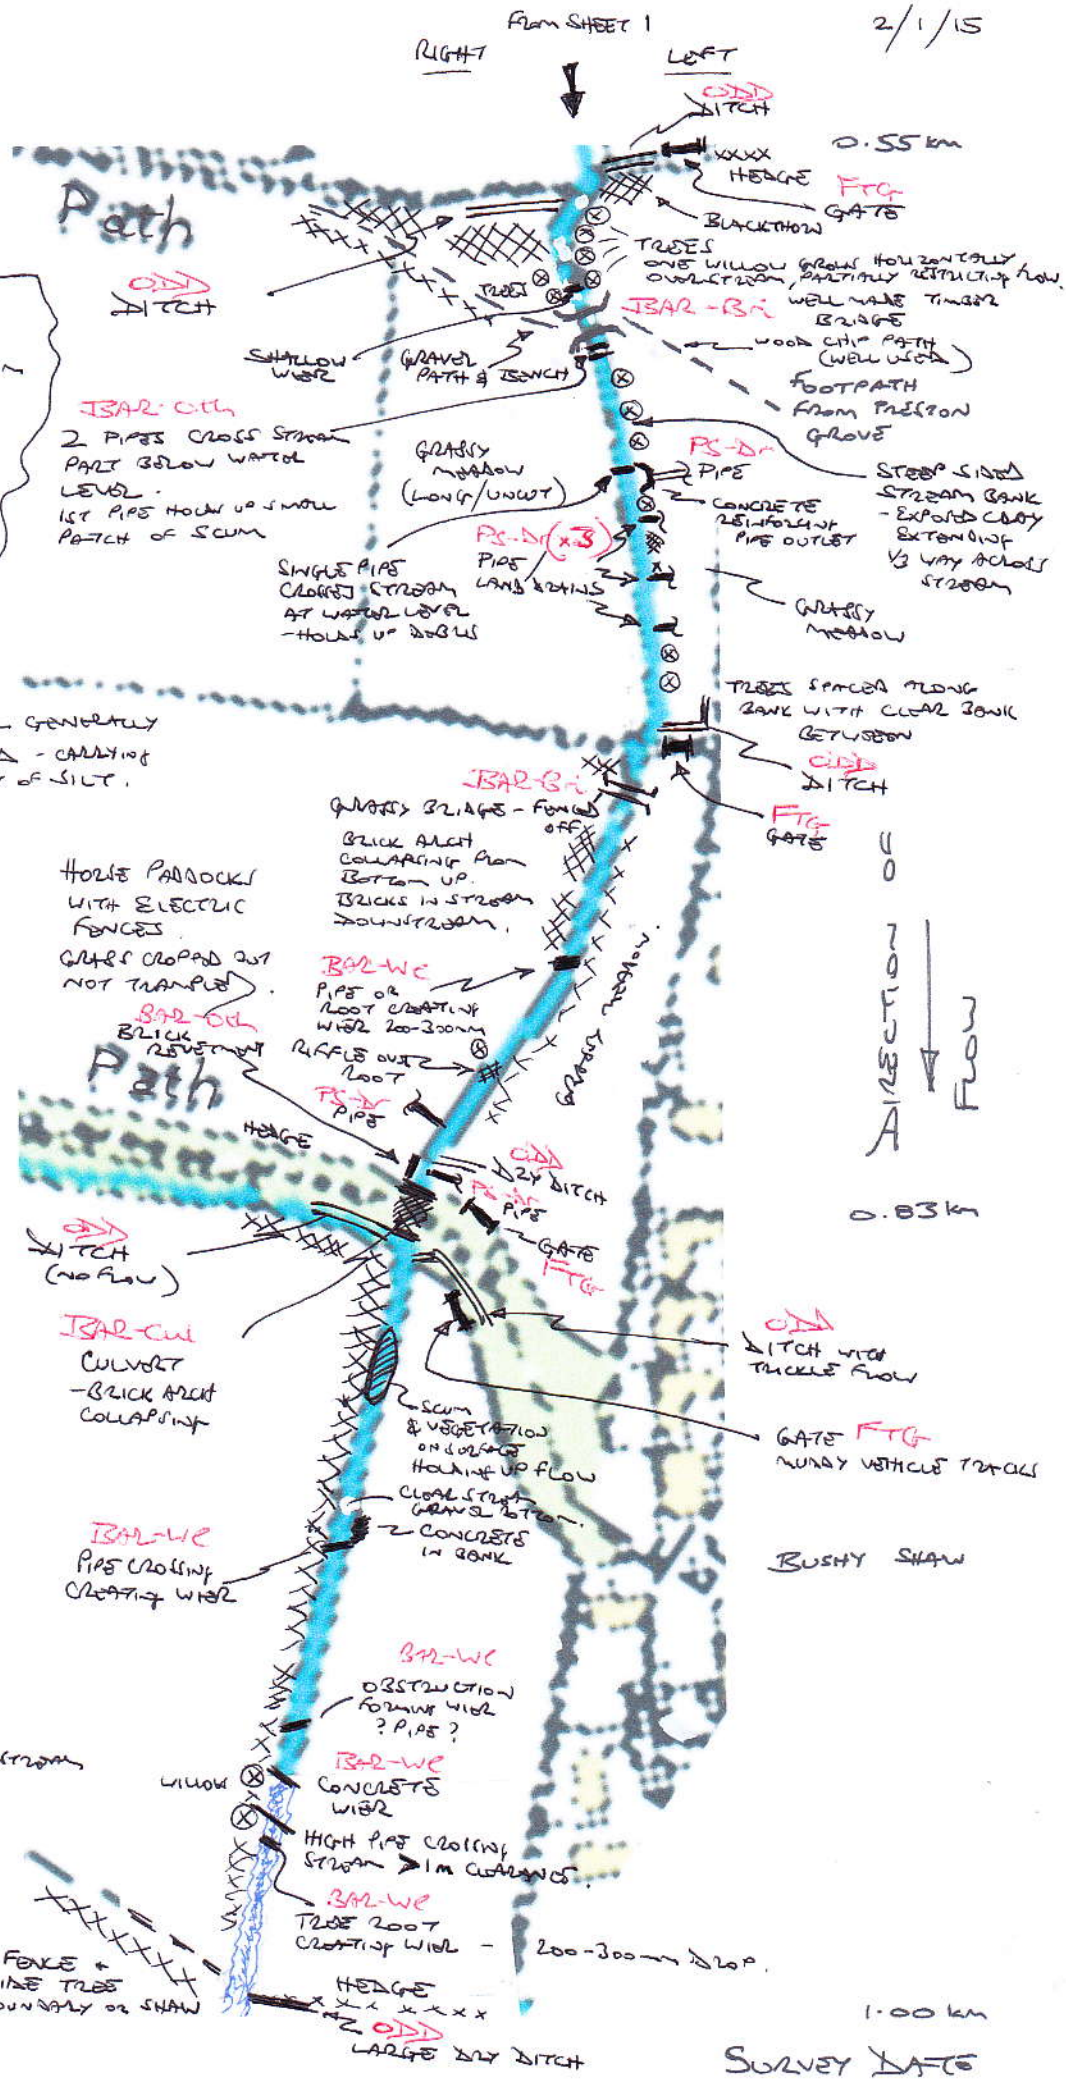 From SHEET 1
2/1/15
RIGHT
LEFT
ODD
DITCH
0.55 km
XXXX
HEDGE
FTG
GATE
Path
BLACKTHORN
TREES
ONE WILLOW GROWS HORIZONTALLY
OVER STREAM, PARTIALLY RESTRICTING FLOW.
ODD
DITCH
TREES
BAR-Bri
WELL MADE TIMBER
BRIDGE
WOOD CHIP PATH
(WELL USED)
SHALLOW
WIER
GRAVEL
PATH & BENCH
FOOTPATH
FROM PRESTON
GROVE
BAR-Oth
2 PIPES CROSS STREAM
PART BELOW WATER
LEVEL.
1ST PIPE HOLDS UP SMALL
PATCH OF SCUM
GRASSY
MEADOW
(LONG/UNCUT)
PS-Dr
PIPE
CONCRETE
REINFORCING
PIPE OUTLET
STEEP SIDED
STREAM BANK
- EXPOSED CLAY
EXTENDING
1/3 WAY ACROSS
STREAM
PS-Dr (x3)
PIPE
LAND DRAINS
SINGLE PIPE
CROSSES STREAM
AT WATER LEVEL
- HOLDS UP DEBRIS
GRASSY
MEADOW
TREES SPACED ALONG
BANK WITH CLEAR BANK
BETWEEN
GENERALLY
- CARRYING
OF SILT.
ODD
DITCH
FTG
GATE
BAR-Bri
GRASSY BRIDGE - FENCED
OFF
BRICK ARCH
COLLAPSING FROM
BOTTOM UP.
BRICKS IN STREAM
DOWNSTREAM.
HORSE PADDOCKS
WITH ELECTRIC
FENCES.
GRASS CROPPED BUT
NOT TRAMPLED.
DIRECTION OF
FLOW
GRASSY MEADOW.
BAR-We
PIPE OR
ROOT CREATING
WIER 200-300mm
BAR-Oth
BRICK
REVETMENT
RIFFLE OVER
ROOT
Path
PS-Dr
PIPE
HEDGE
ODD
DRY DITCH
PS-Dr
PIPE
0.83 km
GATE
FTG
ODD
DITCH
(NO FLOW)
BAR-Cul
CULVERT
- BRICK ARCH
COLLAPSING
ODD
DITCH WITH
TRICKLE FLOW
SCUM
& VEGETATION
ON SURFACE
HOLDING UP FLOW
GATE FTG
MUDDY VEHICLE TRACKS
CLEAR STREAM
GRAVEL BOTTOM.
CONCRETE
IN BANK
BAR-We
PIPE CROSSING
CREATING WIER
BUSHY SHAW
BAR-We
OBSTRUCTION
FORMING WIER
? PIPE ?
STREAM
WILLOW
BAR-We
CONCRETE
WIER
HIGH PIPE CROSSING
STREAM >1m CLEARANCE.
BAR-We
TREE ROOT
CREATING WIER - 200-300mm DROP.
FENCE &
TREE
BOUNDARY OF SHAW
HEDGE
ODD
LARGE DRY DITCH
1.00 km
SURVEY DATE